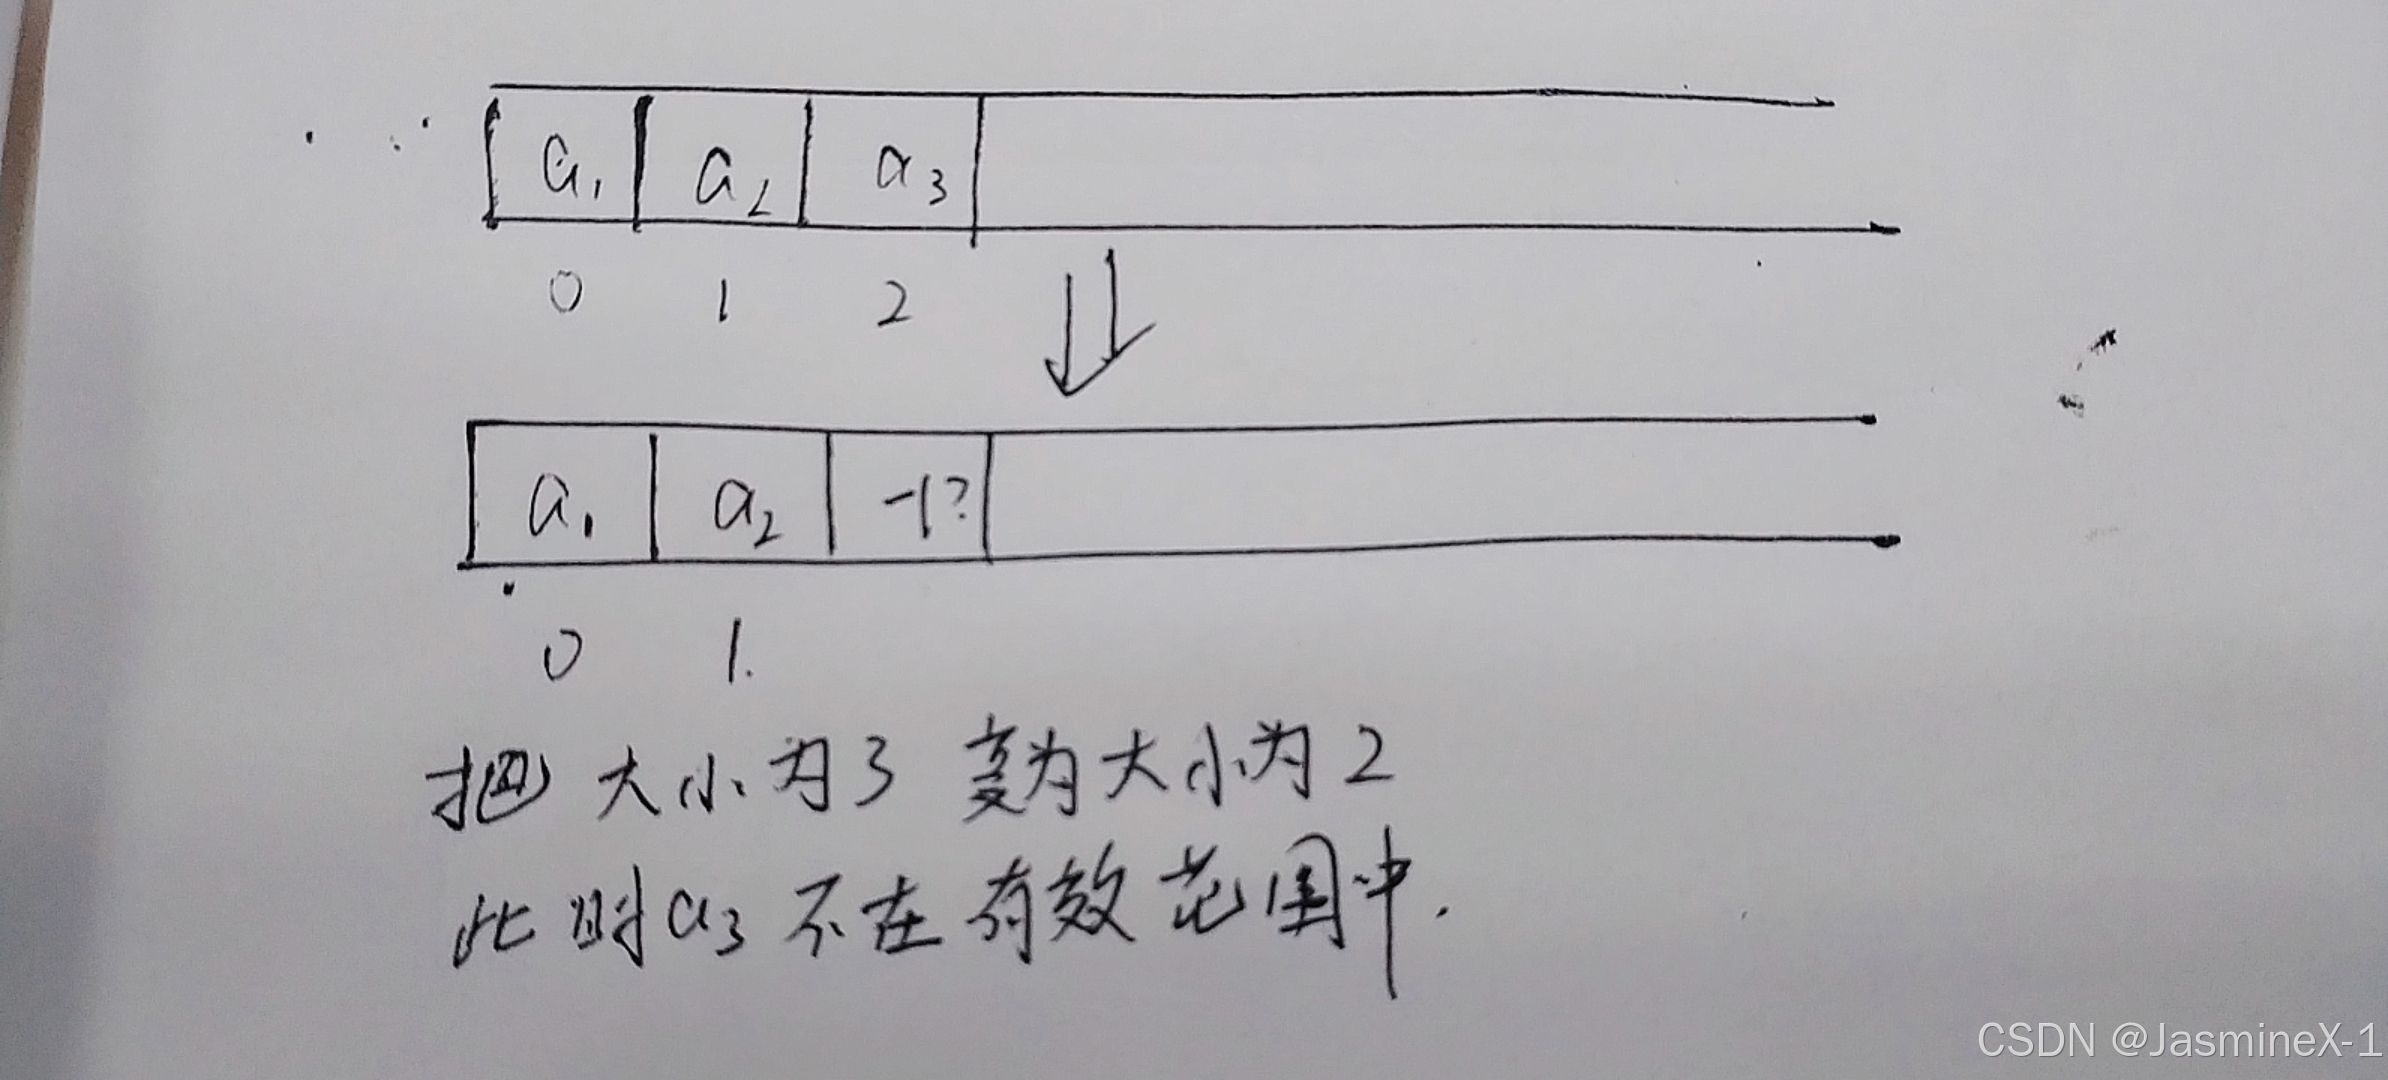 a₁ a₂ a₃
0 1 2
a₁ a₂ -1?
0 1.
把大小为3 变为大小为2
此时a₃不在有效范围中.
CSDN @JasmineX-1